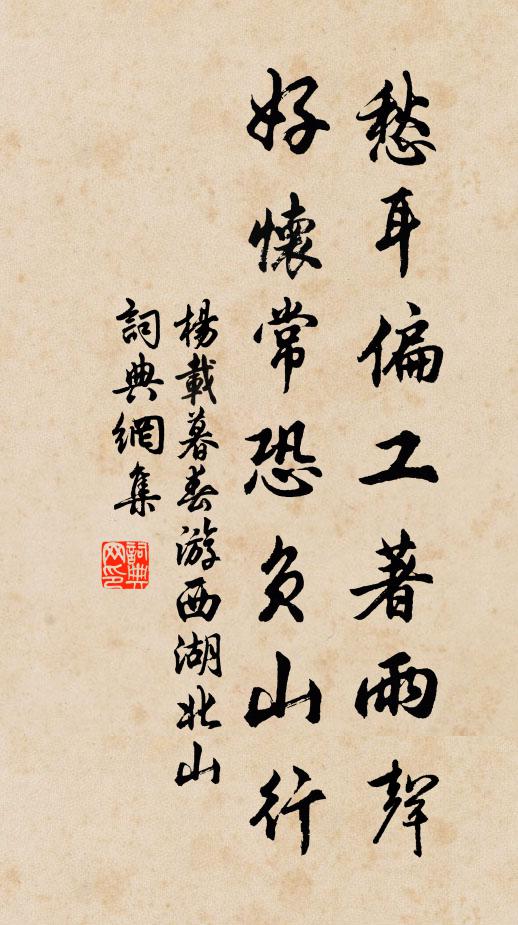 愁耳偏工著雨聲
好懷常恐負山行
楊載暮春游西湖北山
詞典網集
詞典
网印